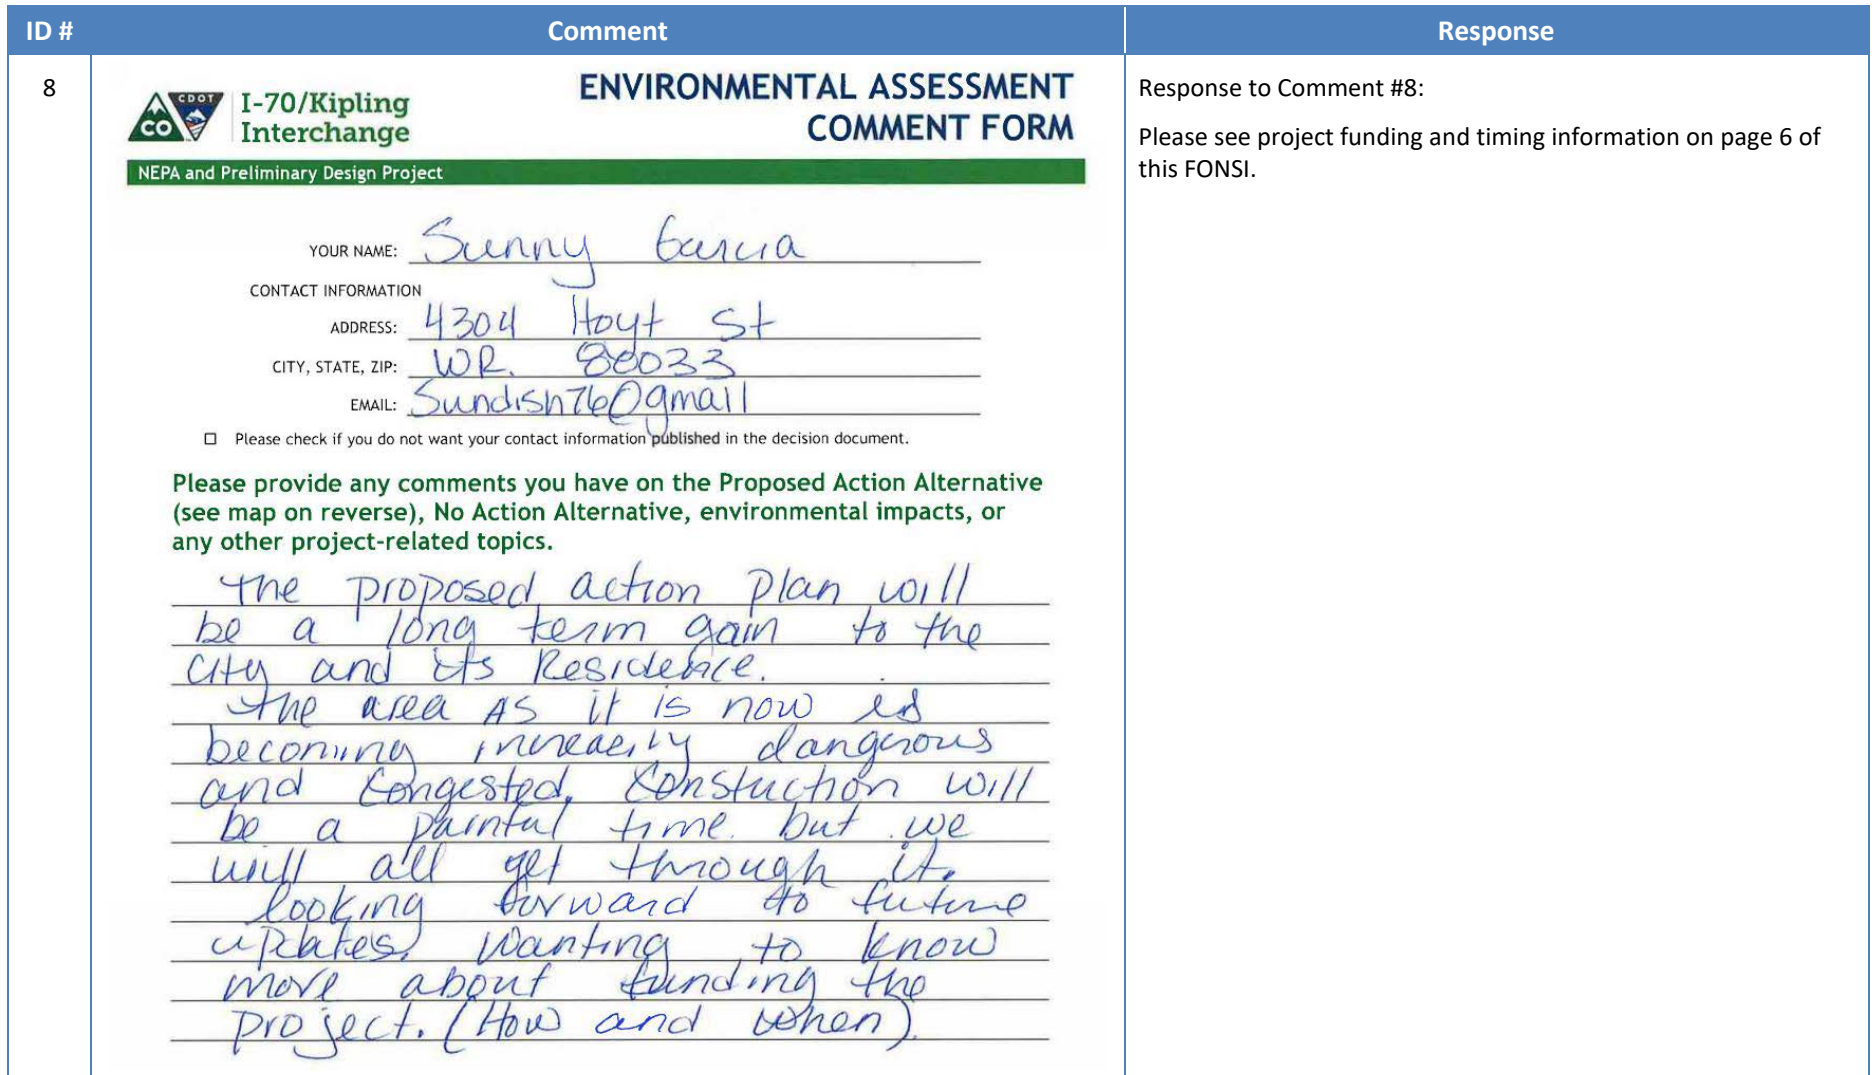 ID #
Comment
Response
8
CDOT
CO
I-70/Kipling
Interchange
ENVIRONMENTAL ASSESSMENT
COMMENT FORM
NEPA and Preliminary Design Project
YOUR NAME: Sunny Garcia
CONTACT INFORMATION
ADDRESS: 4304 Hoyt St
CITY, STATE, ZIP: WR. 80033
EMAIL: Sundish76@gmail
☐ Please check if you do not want your contact information published in the decision document.
Please provide any comments you have on the Proposed Action Alternative
(see map on reverse), No Action Alternative, environmental impacts, or
any other project-related topics.
The proposed action plan will
be a long term gain to the
City and its Residence.
The area AS it is now is
becoming dangerous
and Congested. Constuction will
be a painful time but we
will all get through it.
looking forward to future
updates. Wanting to know
more about funding the
project. (How and when)
Response to Comment #8:
Please see project funding and timing information on page 6 of
this FONSI.